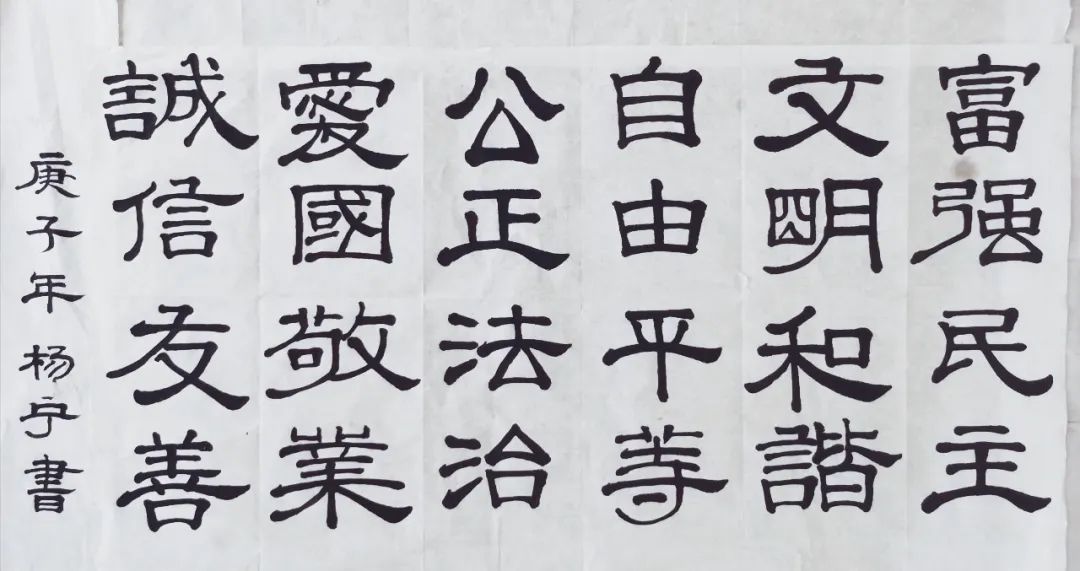 富强民主
文明和諧
自由平等
公正法治
愛國敬業
誠信友善
庚子年杨宁書